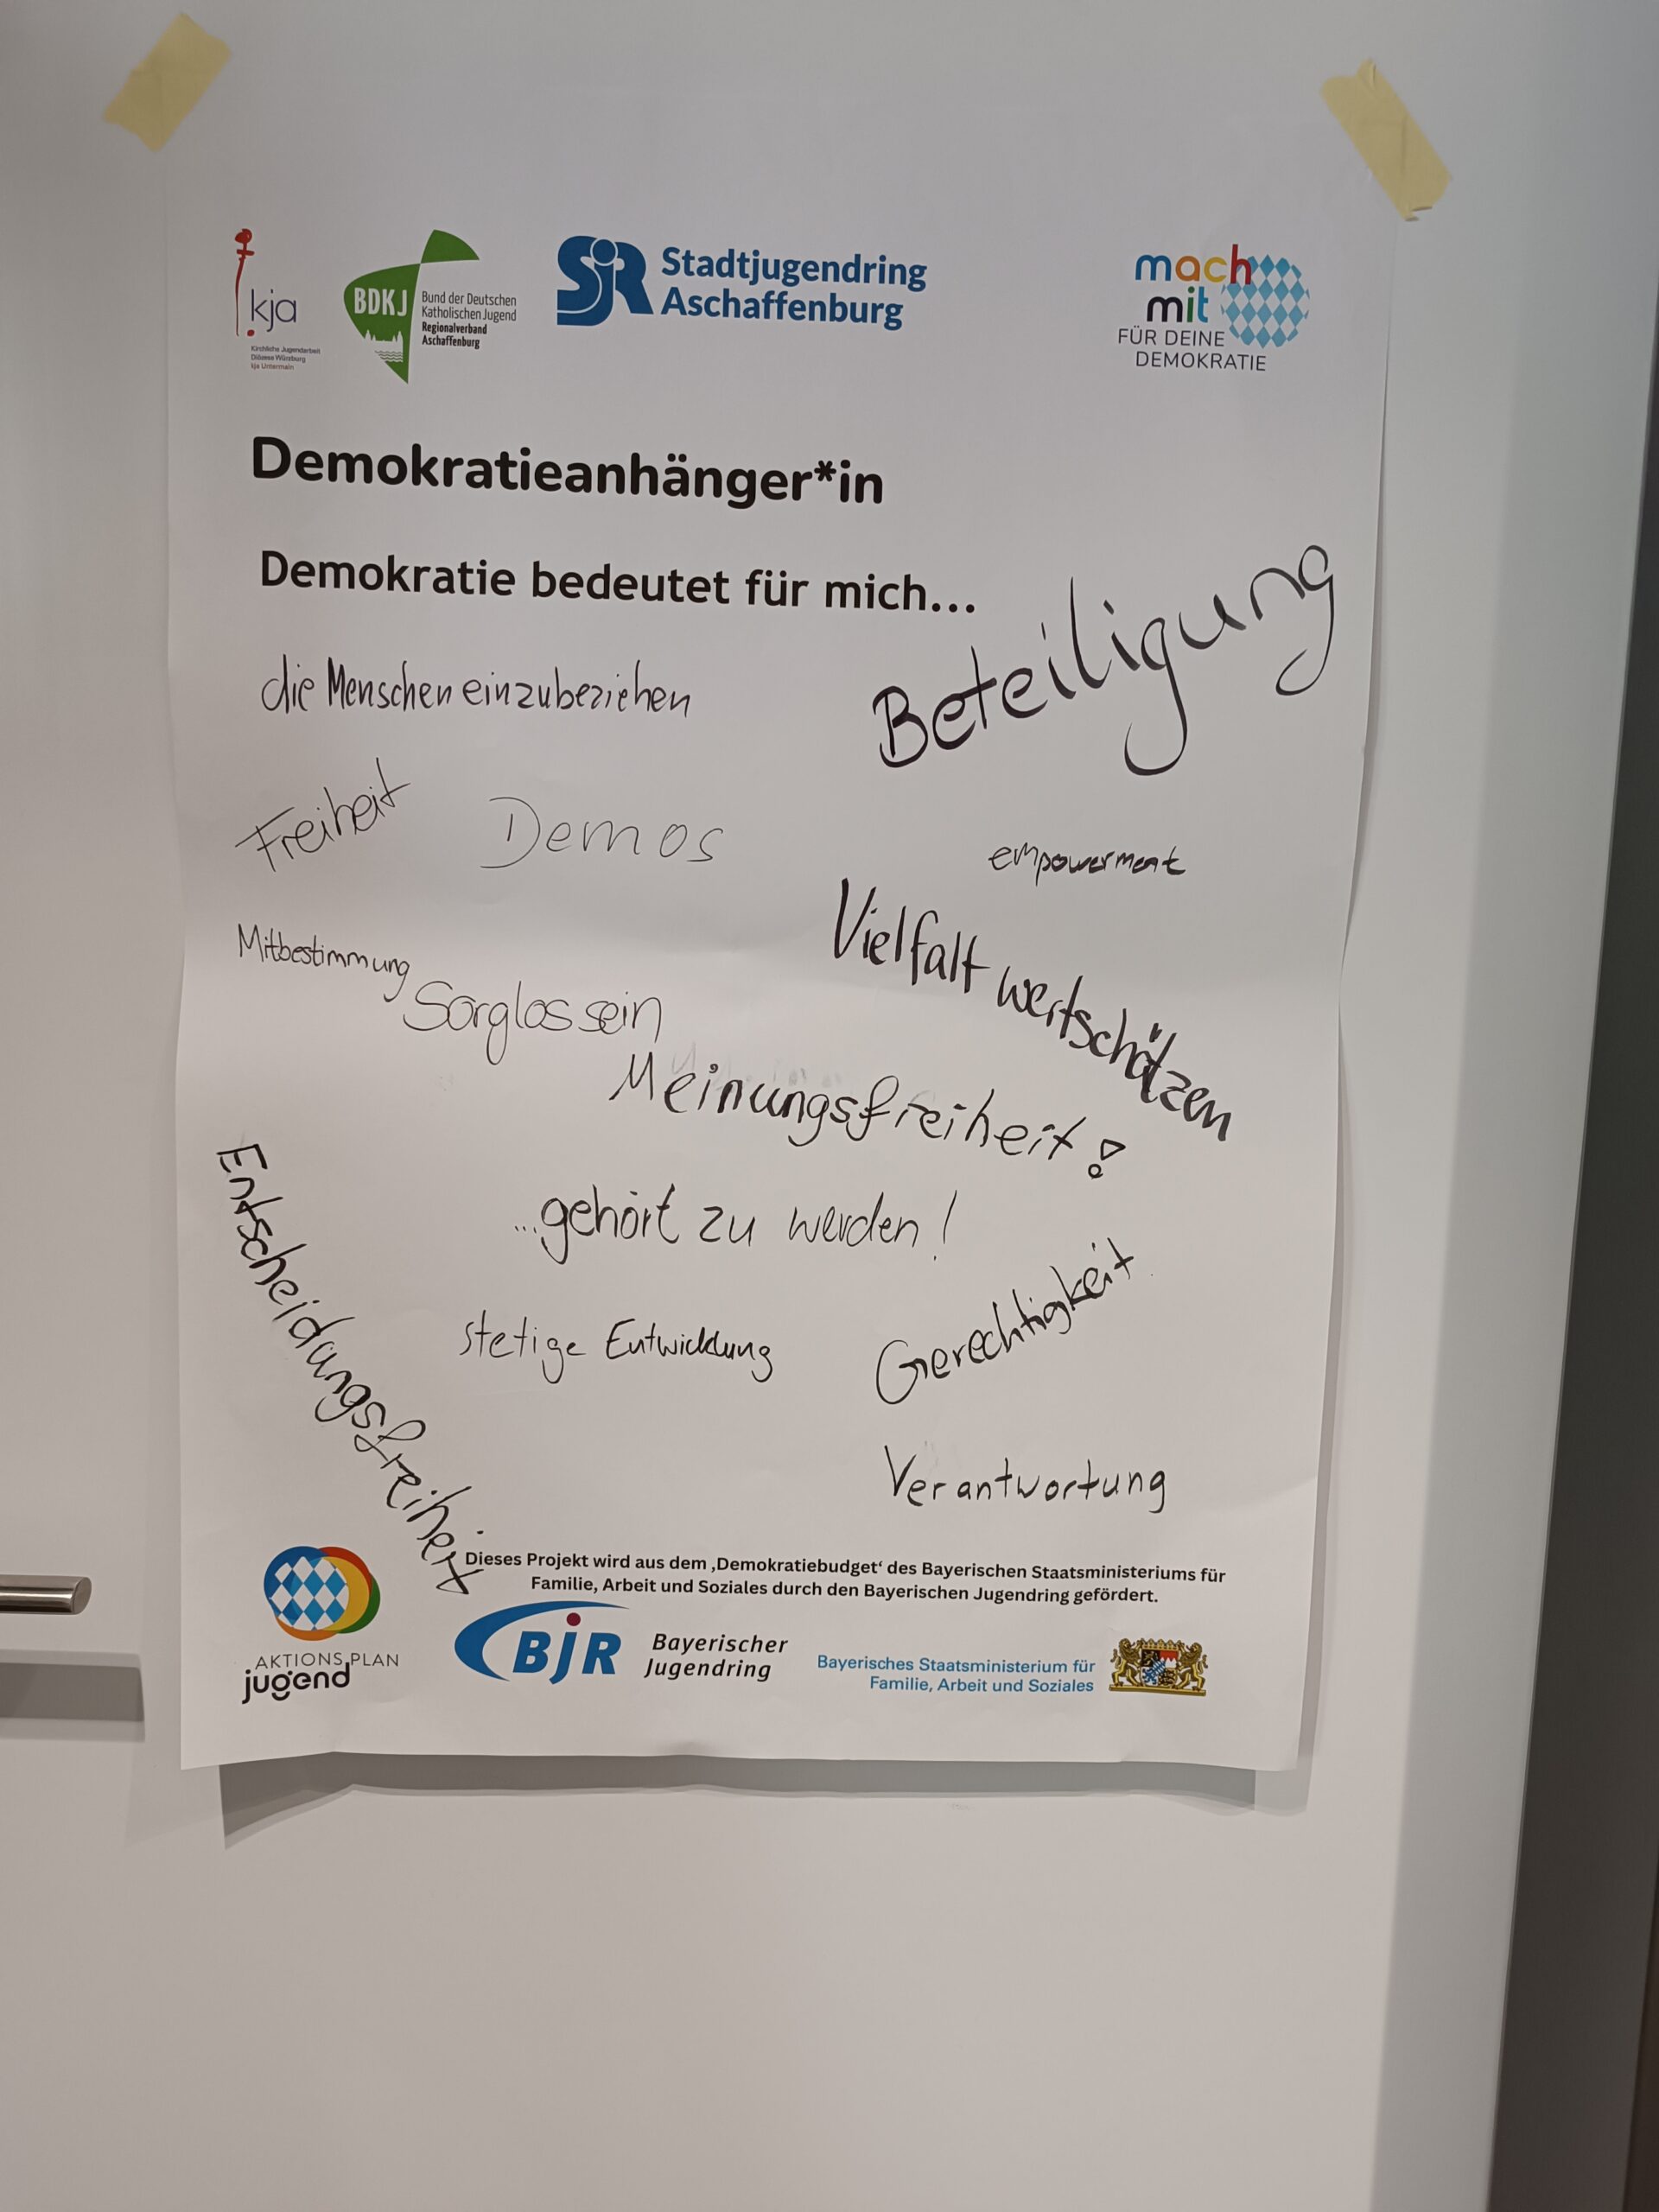 kja
Kirchliche Jugendarbeit
Diözese Würzburg
kja Untermain
BDKJ
Bund der Deutschen
Katholischen Jugend
Regionalverband
Aschaffenburg
SJR
Stadtjugendring
Aschaffenburg
mach
mit
FÜR DEINE
DEMOKRATIE
Demokratieanhänger*in
Demokratie bedeutet für mich...
Beteiligung
die Menschen einzubeziehen
Freiheit
Demos
empowerment
Vielfalt wertschätzen
Mitbestimmung
Sorglos sein
Meinungsfreiheit!
...gehört zu werden!
Entscheidungsfreiheit
stetige Entwicklung
Gerechtigkeit
Verantwortung
Dieses Projekt wird aus dem ‚Demokratiebudget‘ des Bayerischen Staatsministeriums für
Familie, Arbeit und Soziales durch den Bayerischen Jugendring gefördert.
AKTIONSPLAN
jugend
BJR
Bayerischer
Jugendring
Bayerisches Staatsministerium für
Familie, Arbeit und Soziales